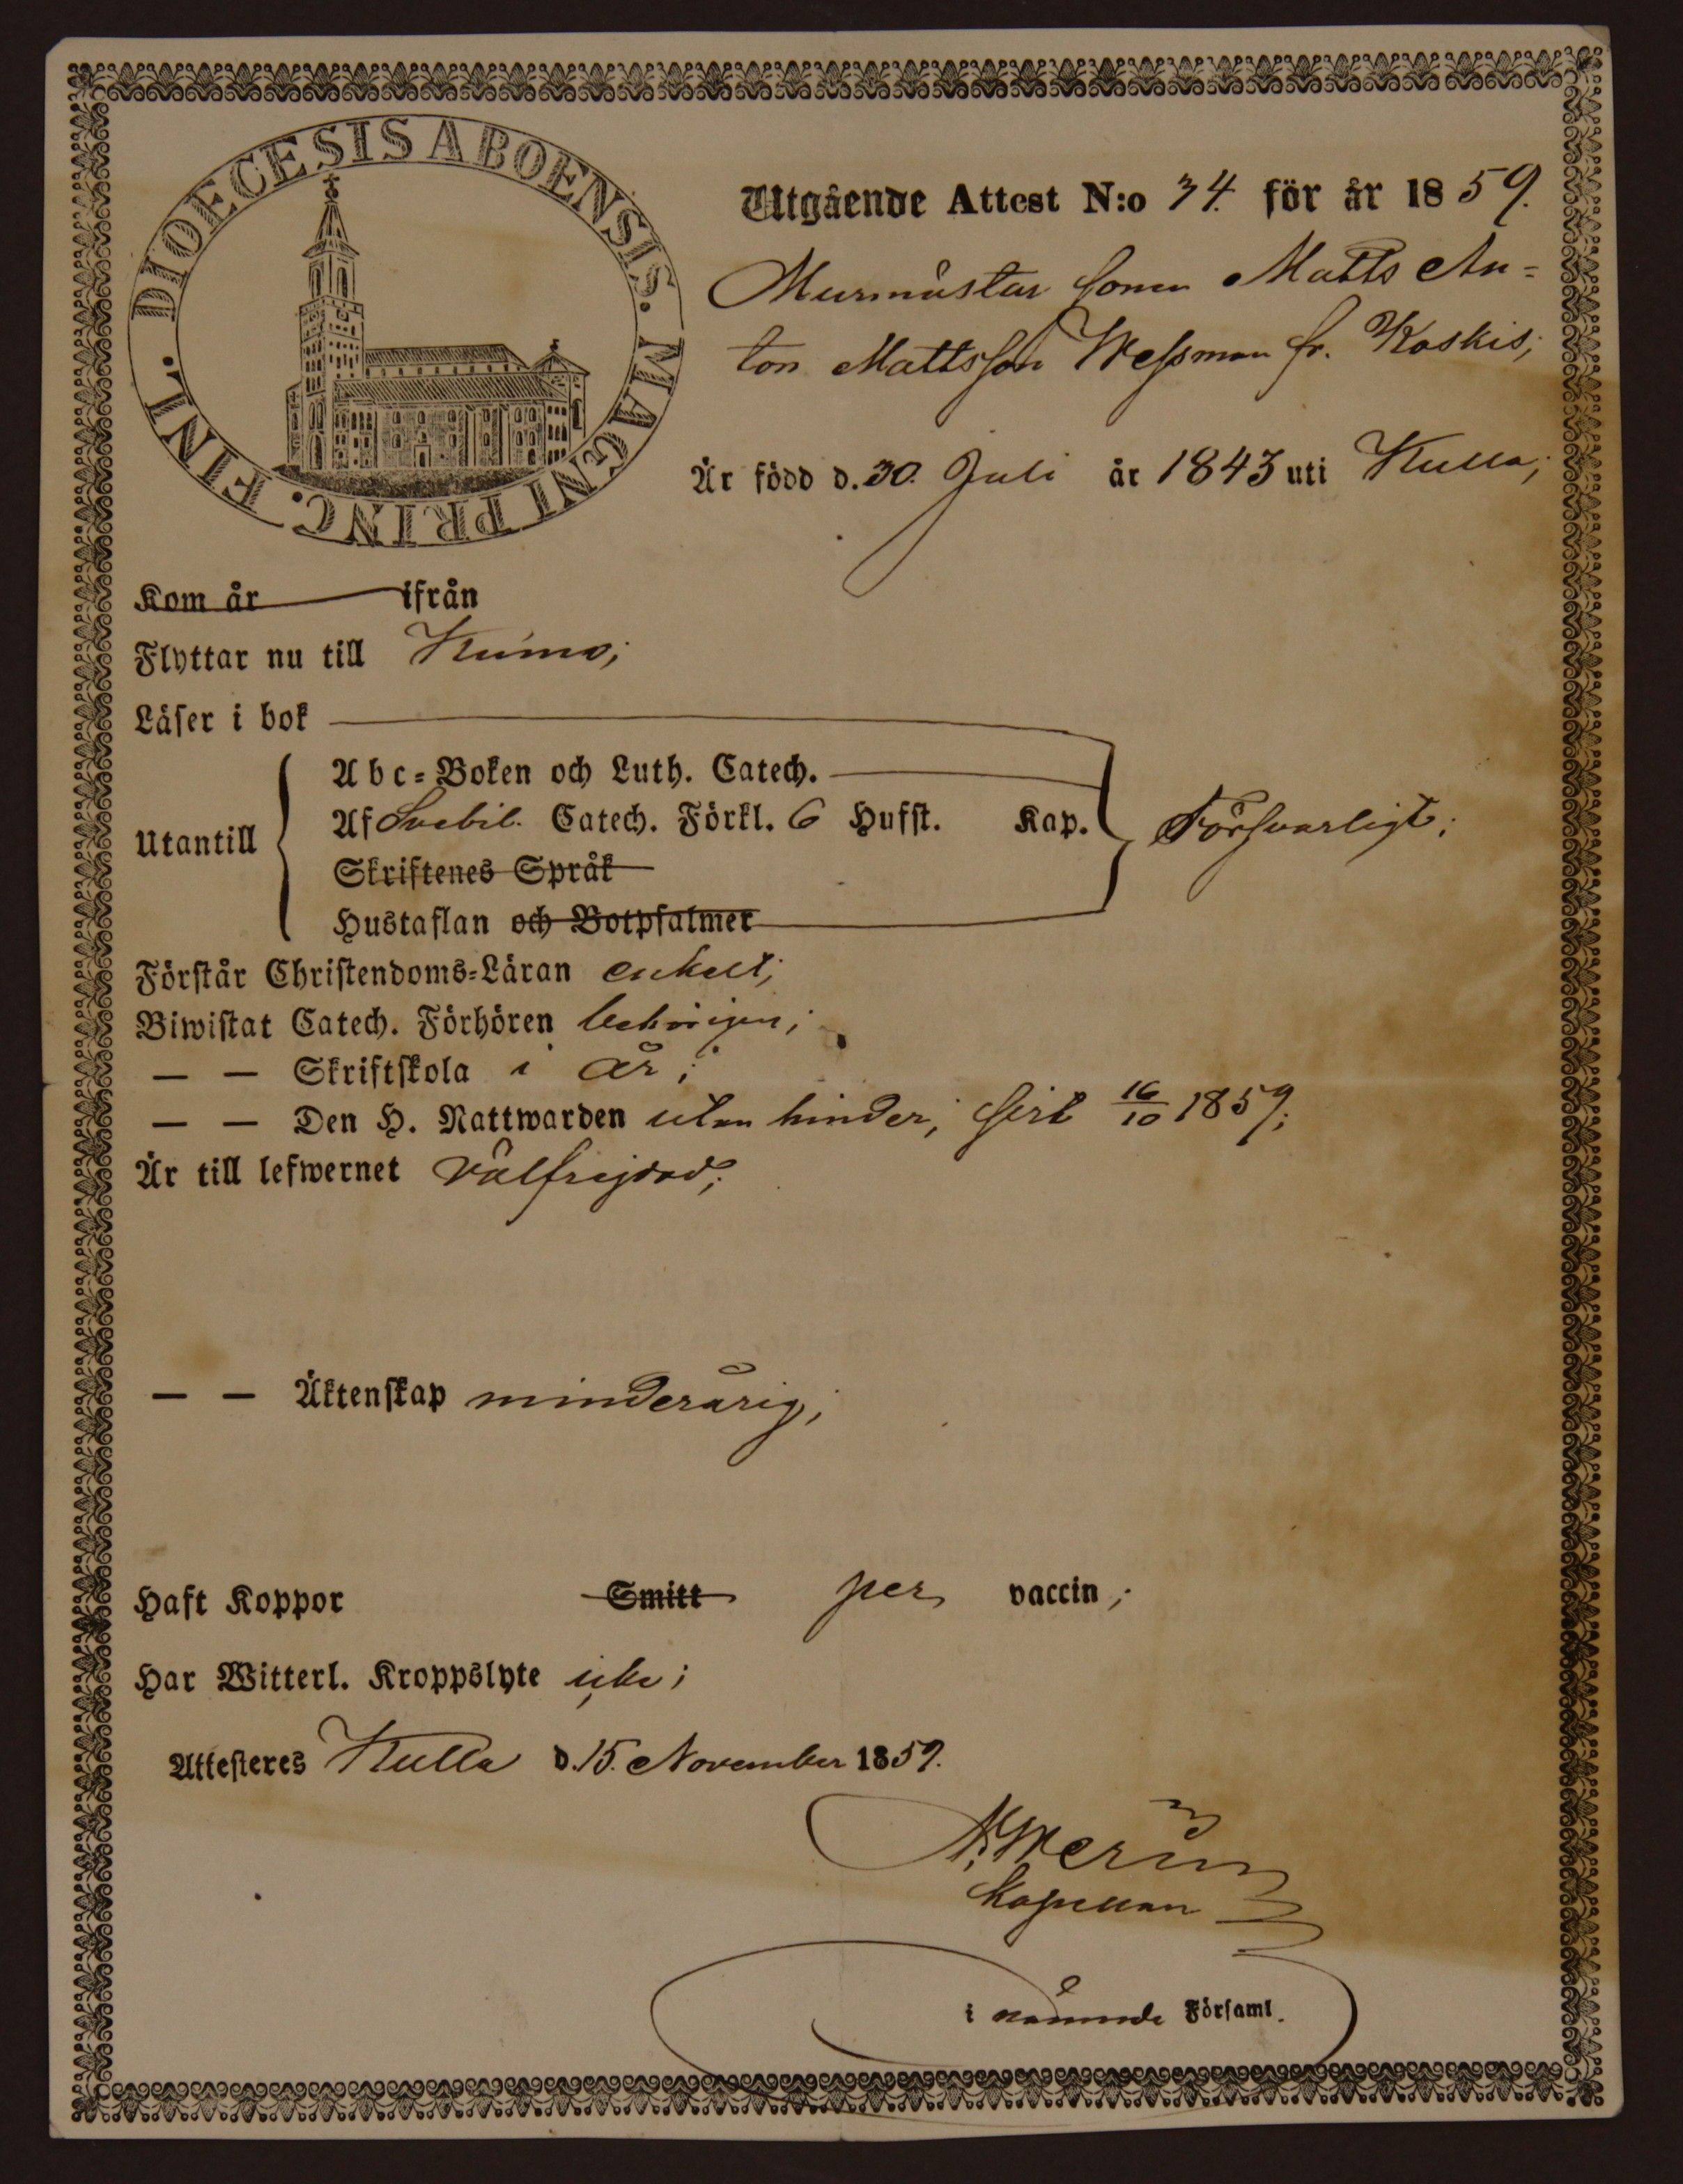 DIOECESIS ABOENSIS. MAGNI PRINC. FINL.
Utgående Attest N:o 34. för år 1859.
Murmästar sonen Matts An=
ton Mattsson Wessman fr. Koskis;
Är född d. 30. Juli år 1843 uti Kulla;
Kom år ifrån
Flyttar nu till Kumo;
Läser i bok
Abc=Boken och Luth. Catech.
Utantill Af Svebil. Catech. Förkl. 6 Hufst. Kap. Försvarligt;
Skriftenes Språk
Hustaflan och Botpsalmer
Förstår Christendoms=Läran enkelt;
Biwistat Catech. Förhören behörigen;
— — Skriftskola i år;
— — Den H. Nattwarden utan hinder, sist 16/10 1859;
Är till lefwernet välfrejdad;
— — Äktenskap minderårig;
Haft Koppor Smitt per vaccin;
Har Witterl. Kroppslyte icke;
Attesteres Kulla d. 15. November 1859.
Kapellan
i nämnde Församl.